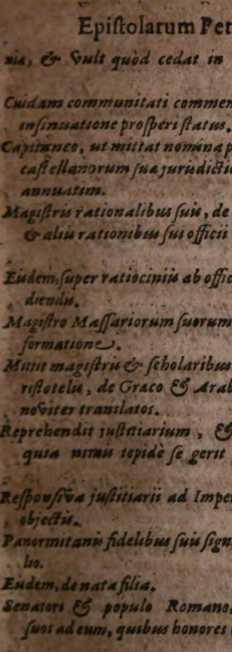 Epistolarum Pet
nia, & vult quòd cedat in
Cuidam communitati commen
insinuatione prosperi status.
Capitaneo, ut mittat nomina p
castellanorum sua jurisdictio
annuatim.
Magistris rationalibus suis, de
& aliis rationibus sui officii
Eisdem, super ratiociniis ab offic
diendis.
Magistro Massariorum suorum
formatione.
Mittit magistris & scholaribus
ristotelis, de Graco & Arab
noviter translatos.
Reprehendit justitiarium, &
quia nimis tepidè se gerit
Responsiva justitiarii ad Impe
objectis.
Panormitanis fidelibus suis sign
lio.
Eisdem, de nata filia.
Senatori & populo Romano,
suos ad eum, quibus honores